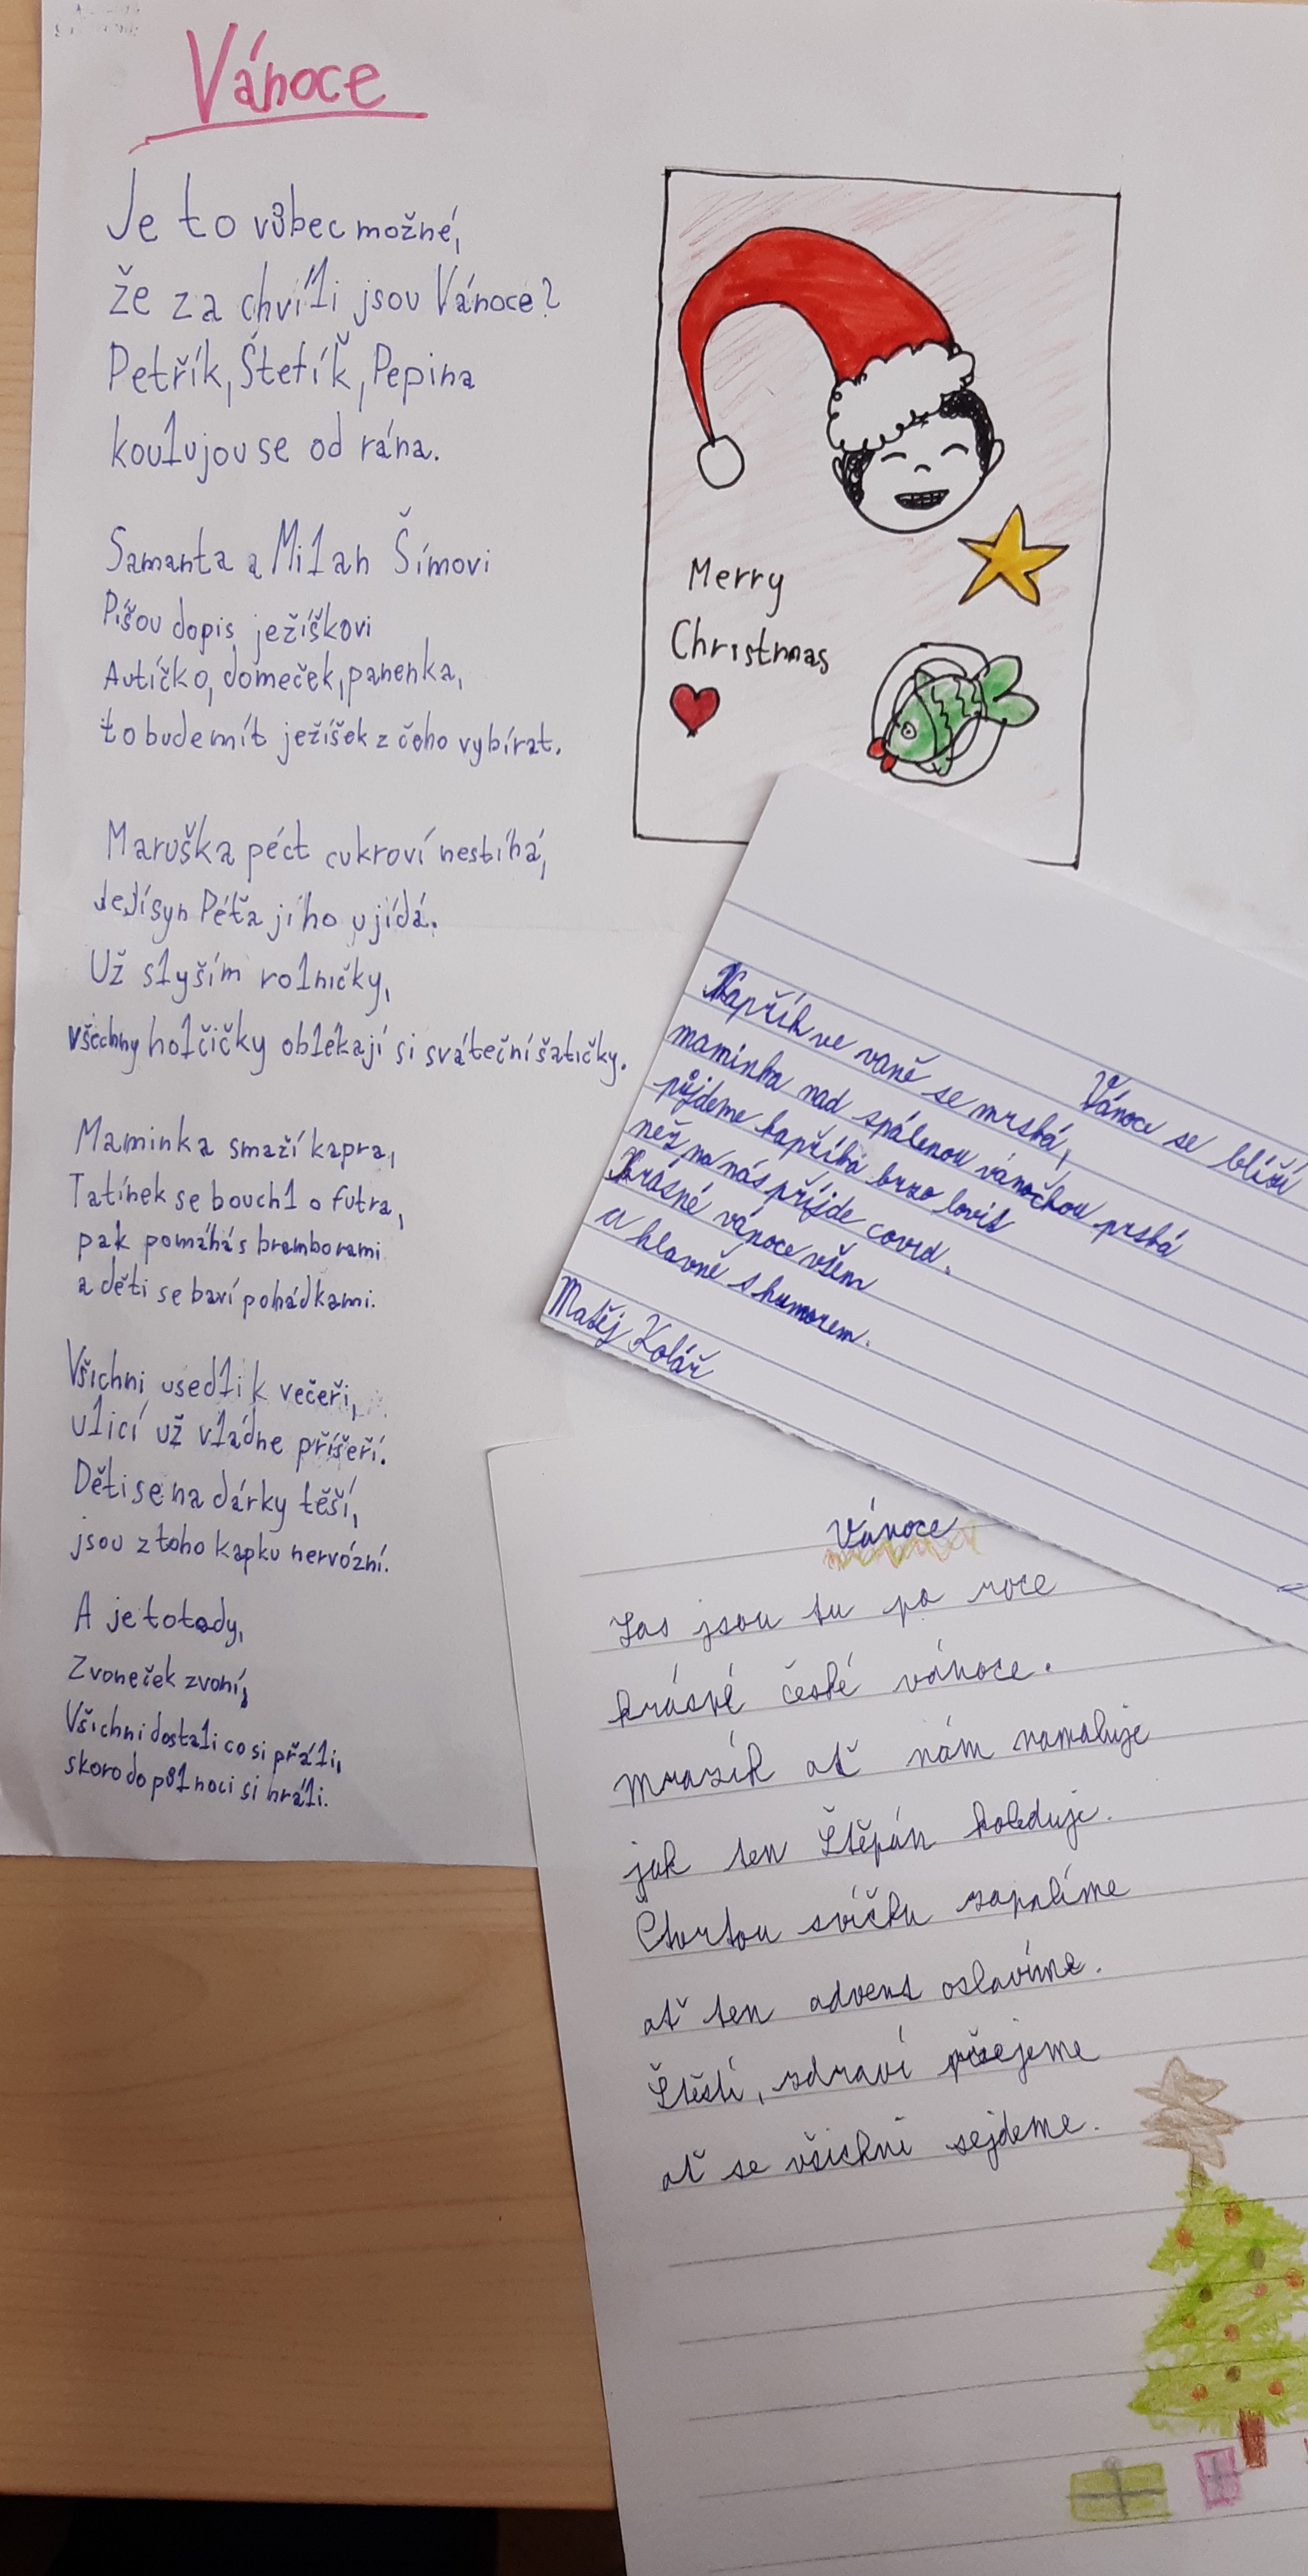 Vánoce
Je to vůbec možné,
že za chvíli jsou Vánoce?
Petřík, Štefík, Pepina
koulujou se od rána.
Samanta a Milan Šímovi
Píšou dopis ježíškovi
Autíčko, domeček, panenka,
to bude mít ježíšek z čeho vybírat.
Maruška péct cukroví nestíhá,
její syn Péťa jí ho ujídá.
Už slyším rolničky,
všechny holčičky oblékají si sváteční šatičky.
Maminka smaží kapra,
Tatínek se bouchl o futra,
pak pomáhá s bramborami
a děti se baví pohádkami.
Všichni usedli k večeři,
ulicí už vládne příšeří.
Děti se na dárky těší,
jsou z toho kapku nervózní.
A je to tady,
Zvoneček zvoní,
Všichni dostali co si přáli,
skoro do půlnoci si hráli.
Merry
Christmas
Vánoce se blíží
Kapřík ve vaně se mrská,
maminka nad spálenou vánočkou prská
půjdeme kapříka brzo lovit
než na nás příjde covid.
Krásné vánoce všem
a hlavně s humorem.
Matěj Kolář
Vánoce
Zas jsou tu po roce
krásné české vánoce.
Mrazík ať nám namaluje
jak ten Štěpán koleduje.
Čtvrtou svíčku zapalíme
ať ten advent oslavíme.
Štěstí, zdraví přejeme
ať se všichni sejdeme.